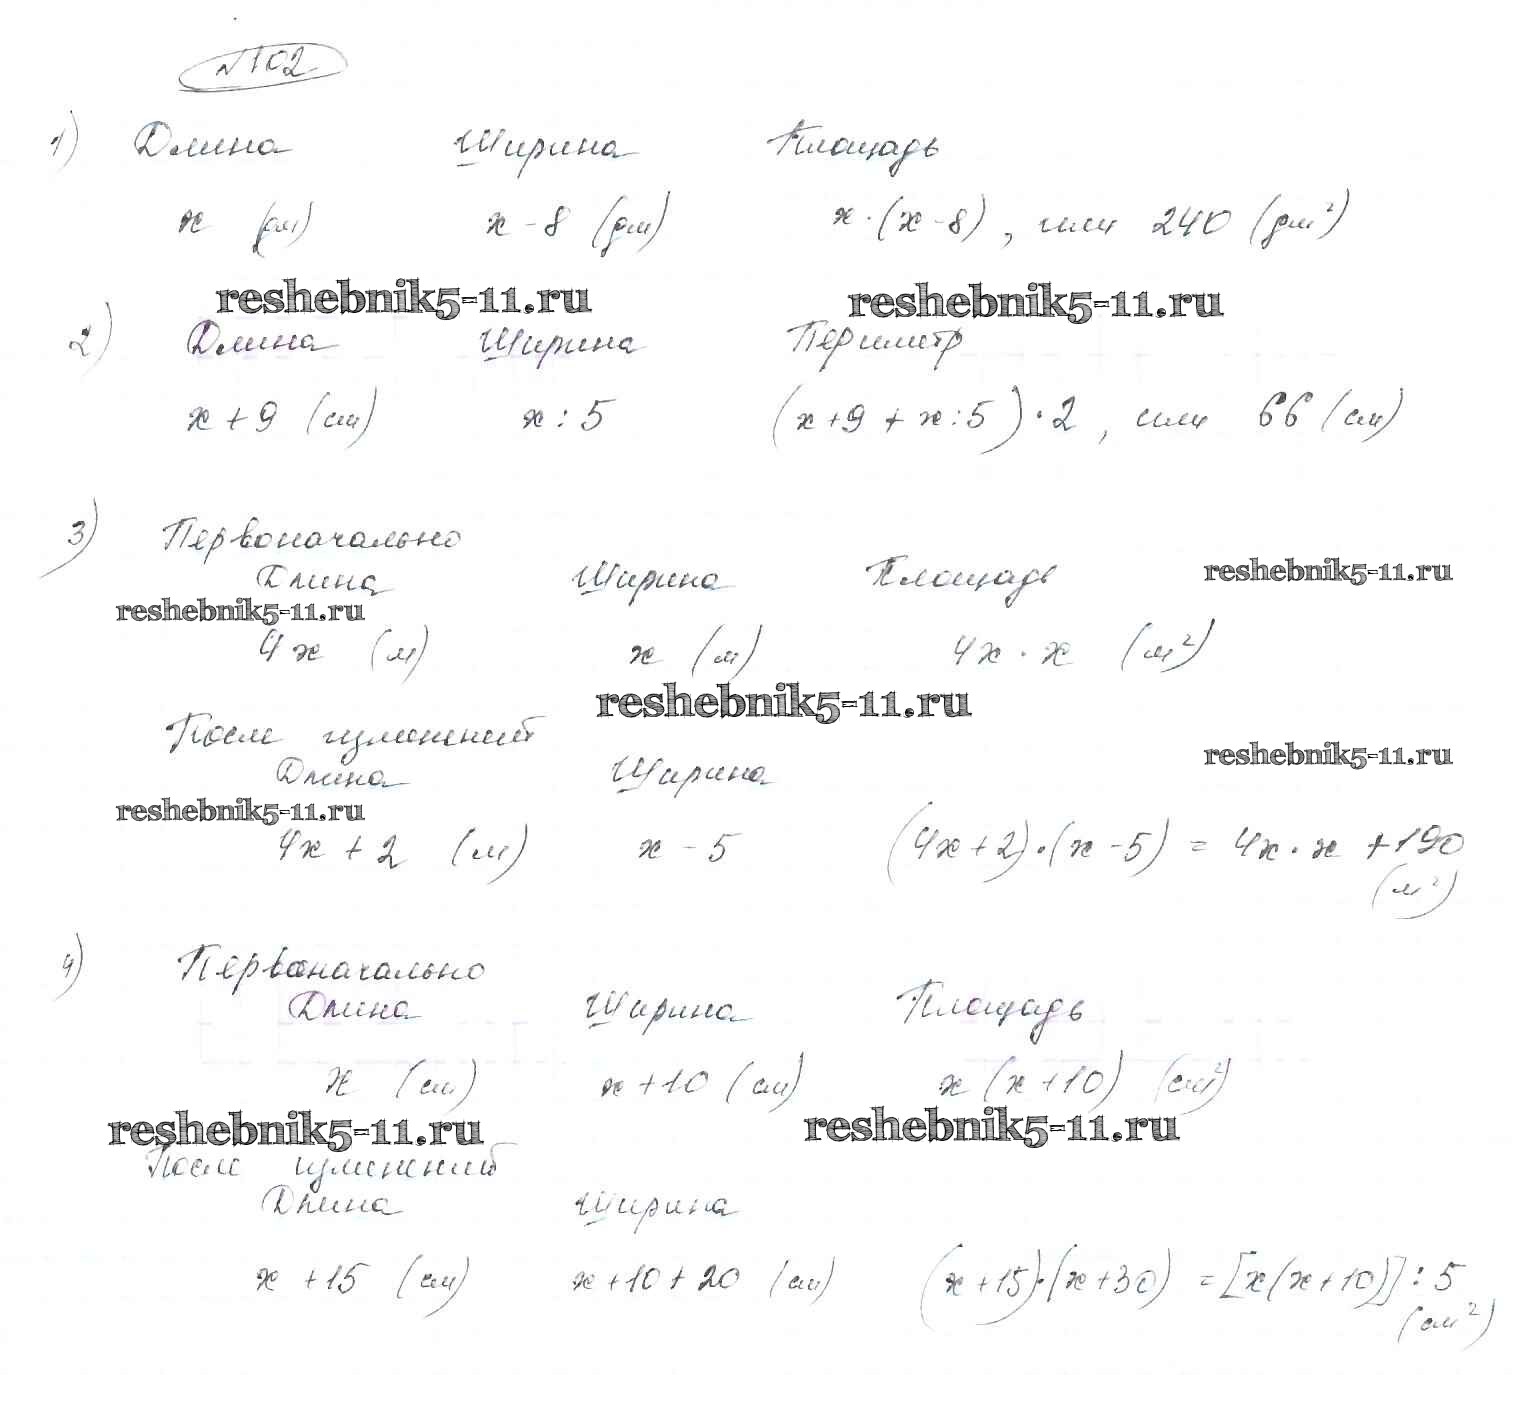 №102
1) Длина Ширина Площадь
x (дм) x - 8 (дм) x·(x-8), или 240 (дм²)
reshebnik5-11.ru reshebnik5-11.ru
2) Длина Ширина Периметр
x + 9 (см) x : 5 (x+9 + x:5)·2, или 66 (см)
3) Первоначально
Длина Ширина Площадь reshebnik5-11.ru
reshebnik5-11.ru
4x (м) x (м) 4x · x (м²)
reshebnik5-11.ru
После изменений
reshebnik5-11.ru
Длина Ширина
reshebnik5-11.ru
4x + 2 (м) x - 5 (4x+2)·(x-5) = 4x·x +190
(м²)
4) Первоначально
Длина Ширина Площадь
x (см) x +10 (см) x (x+10) (см²)
reshebnik5-11.ru reshebnik5-11.ru
После изменений
Длина Ширина
x +15 (см) x+10+20 (см) (x+15)·(x+30) =[x(x+10)]:5
(см²)